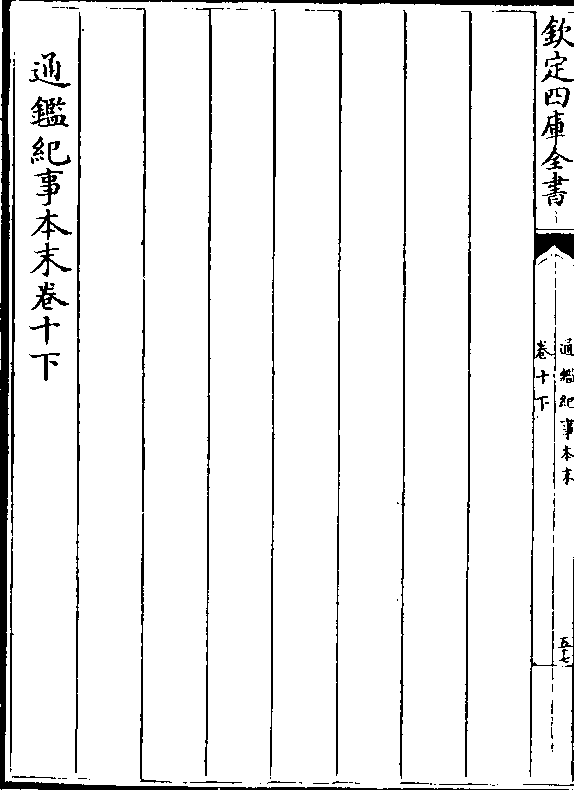 欽定四庫全書
通鑑紀事本末
卷十下
五十七
通鑑紀事本末卷十下